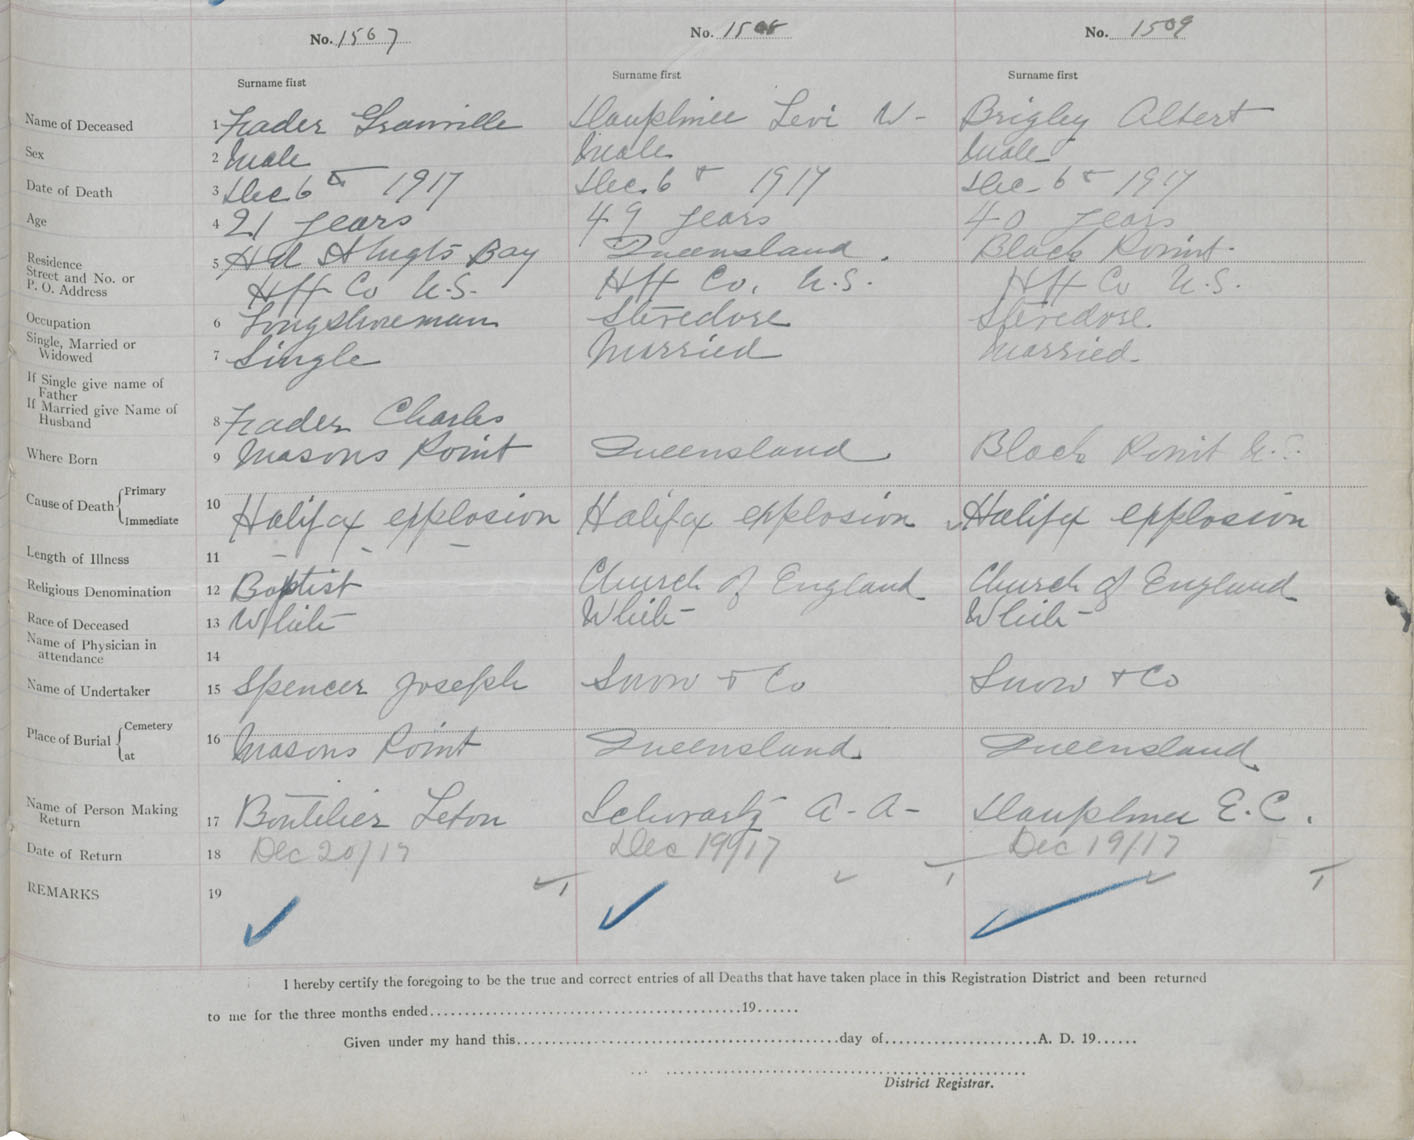 No. 1567 No. 1508 No. 1509
Surname first Surname first Surname first
Name of Deceased 1 Frader Granville Dauphinee Levi W- Brigley Albert
Sex 2 Male Male Male
Date of Death 3 Dec 6th 1917 Dec. 6th 1917 Dec 6th 1917
Age 4 21 years 49 years 40 years
Residence 5 Hd St Mgts Bay Queensland. Black Point
Street and No. or
P. O. Address Hfx Co N.S. Hfx Co, N.S. Hfx Co N.S.
Occupation 6 Longshoreman Stevedore Stevedore
Single, Married or
Widowed 7 Single Married Married
If Single give name of
Father
If Married give Name of
Husband 8 Frader Charles
Where Born 9 Masons Point Queensland Black Point N.S.
Primary
Cause of Death 10 Halifax explosion Halifax explosion Halifax explosion
Immediate
Length of Illness 11
Religious Denomination 12 Baptist Church of England Church of England
Race of Deceased 13 White White White
Name of Physician in
attendance 14
Name of Undertaker 15 Spencer Joseph Snow & Co Snow & Co
Cemetery
Place of Burial 16 Masons Point Queensland Queensland
at
Name of Person Making
Return 17 Boutilier Leton Schwartz A-A- Dauphinee E.C.
Date of Return 18 Dec 20/17 Dec 19/17 Dec 19/17
REMARKS 19
I hereby certify the foregoing to be the true and correct entries of all Deaths that have taken place in this Registration District and been returned
to me for the three months ended 19
Given under my hand this day of A. D. 19
District Registrar.